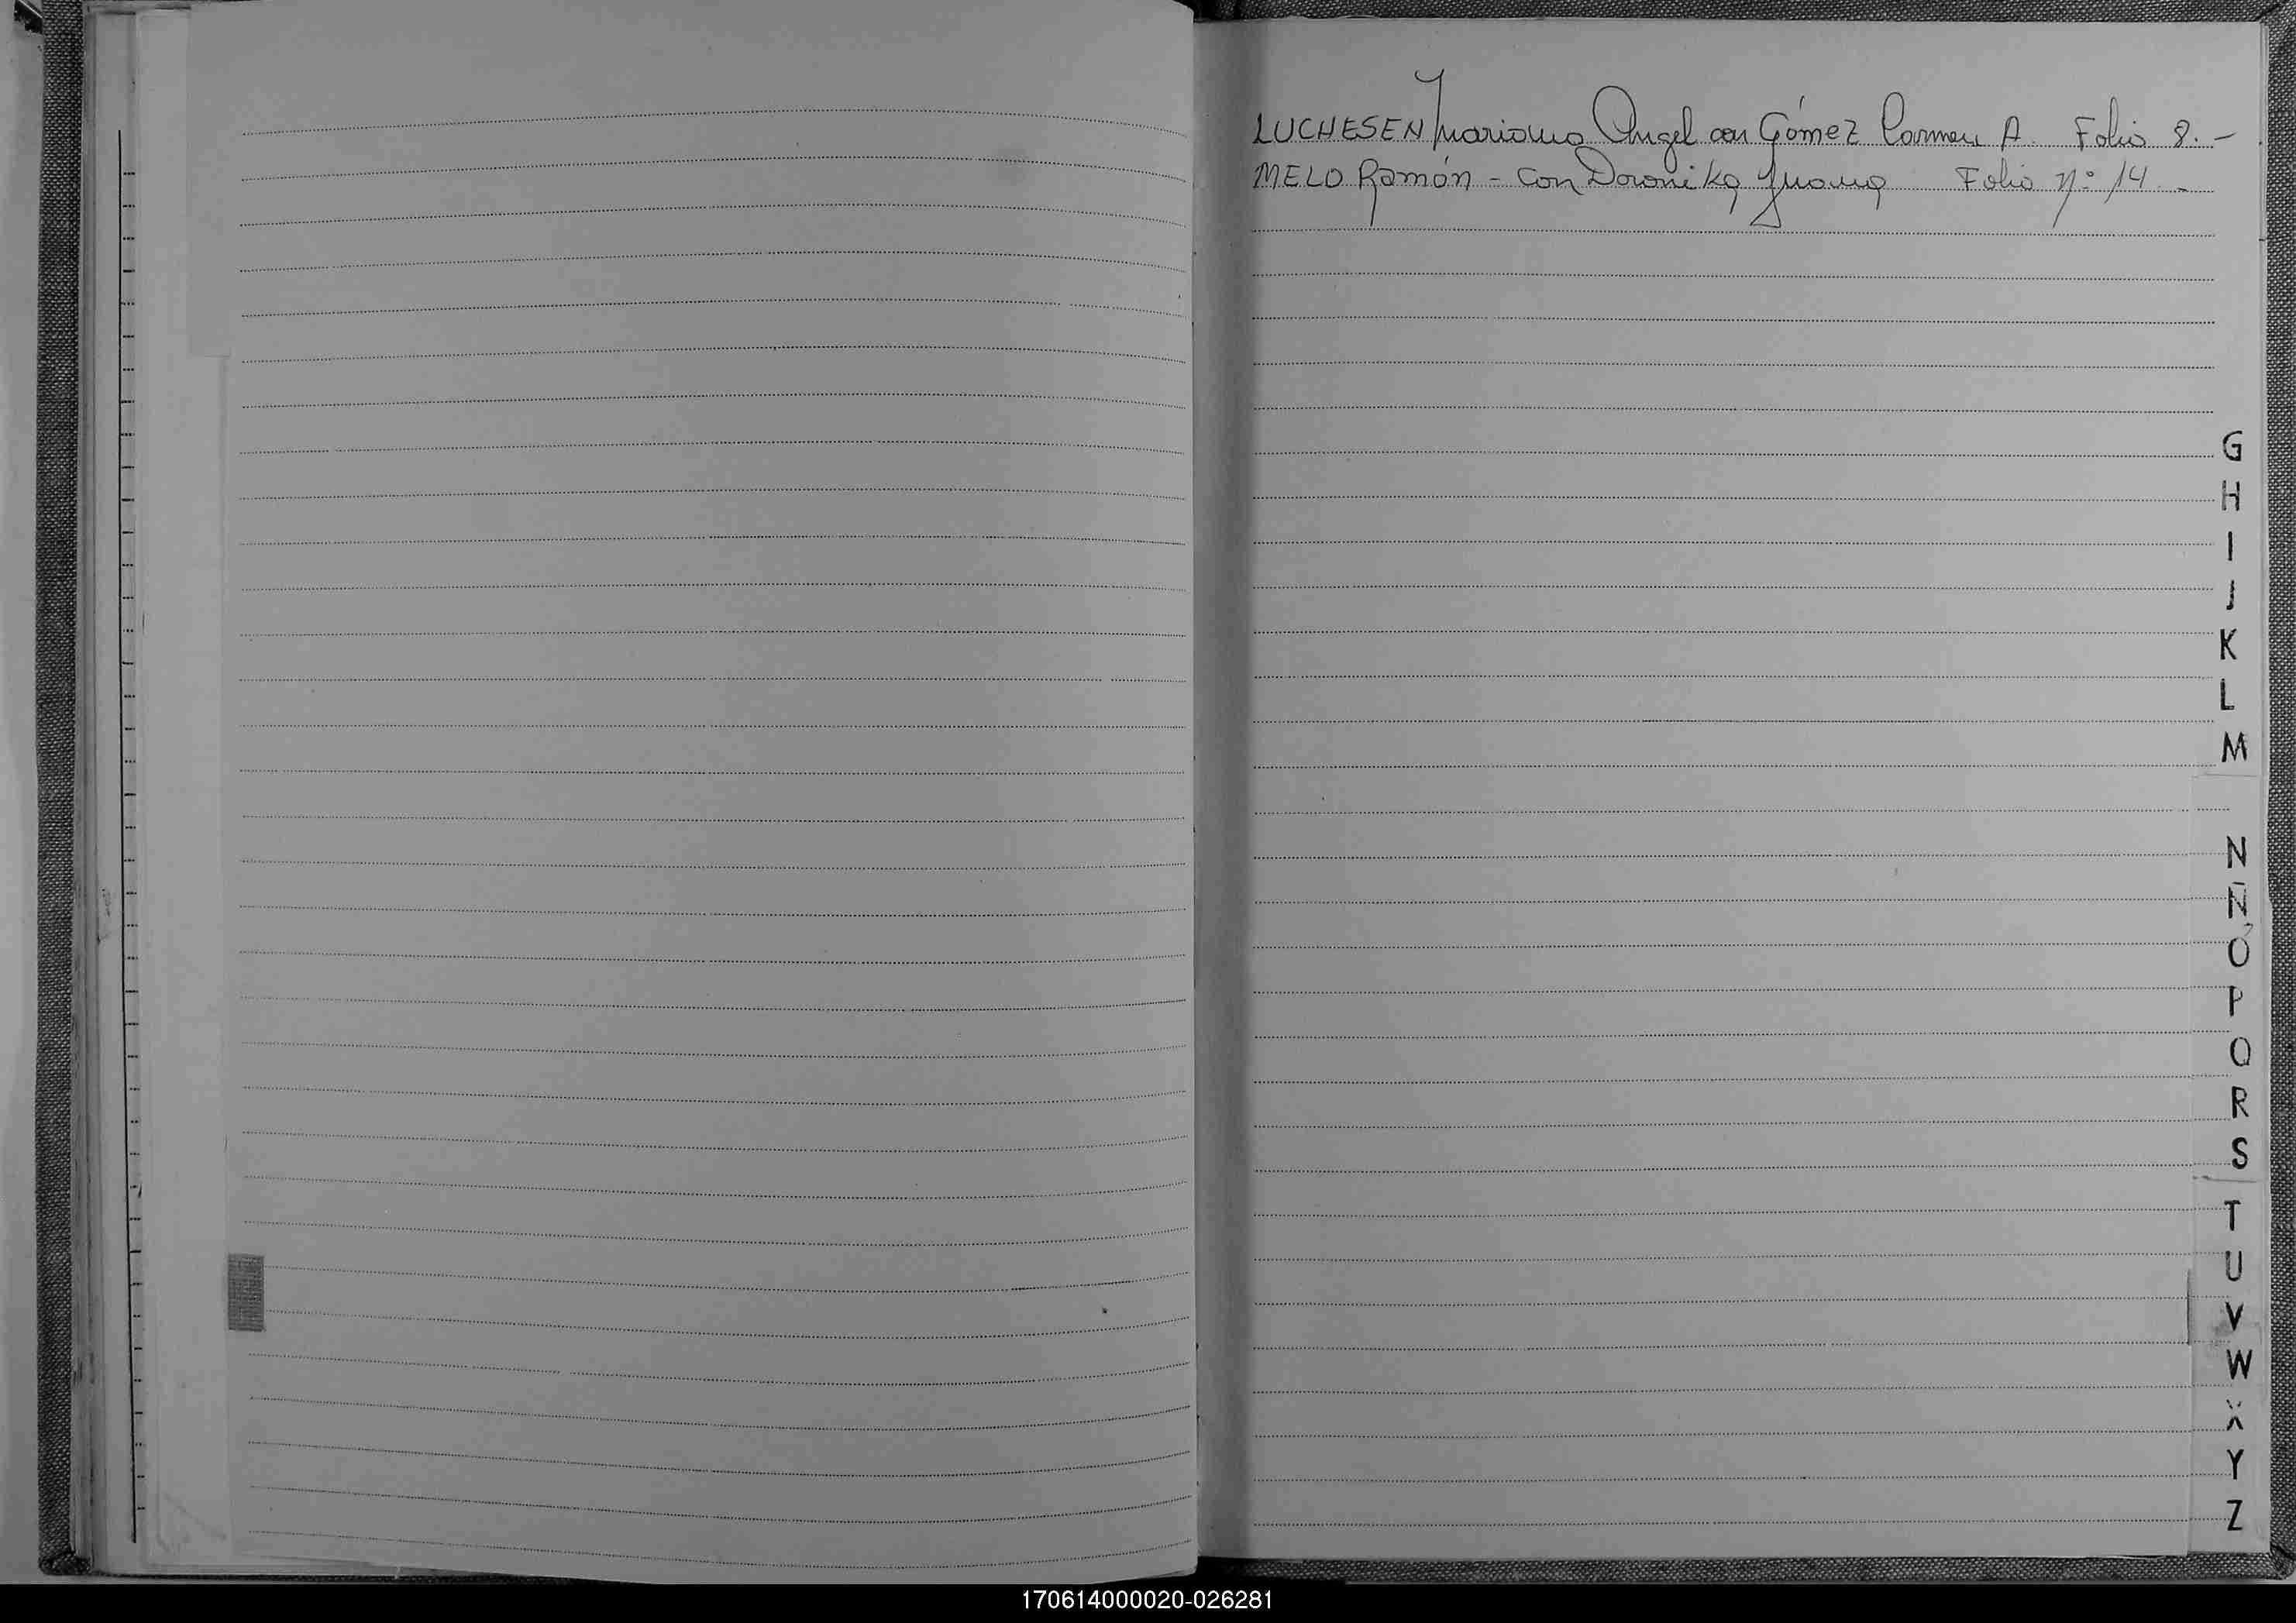 LUCHESEN Mariano Angel con Gómez Carmen A. Folio 8.-
MELO Ramón - con Doronika Juana Folio nº 14.-
G
H
I
J
K
L
M
N
Ñ
O
P
Q
R
S
T
U
V
W
X
Y
Z
170614000020-026281